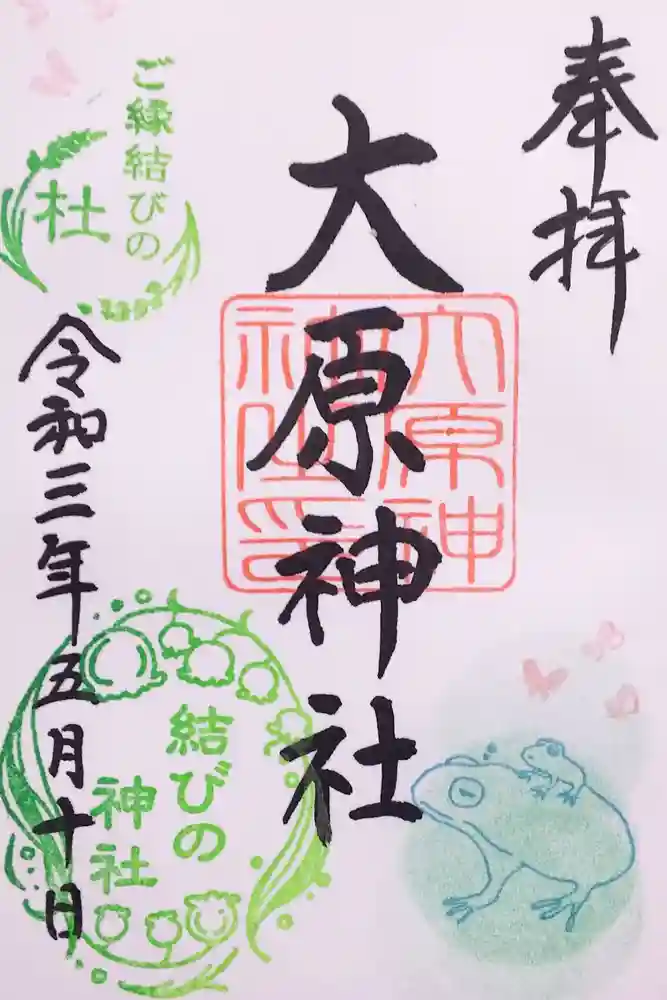 奉拝
大原神社
大原神社印
ご縁結びの
杜
令和三年五月十日
結びの
神社